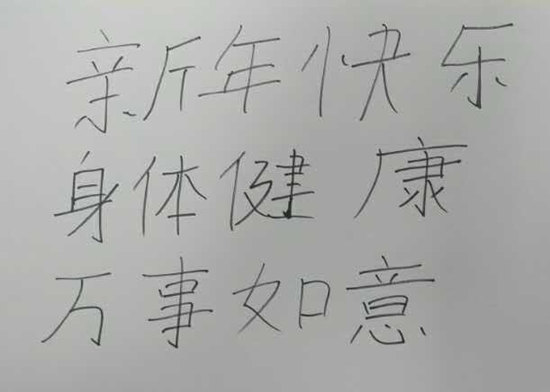 新年快乐
身体健康
万事如意